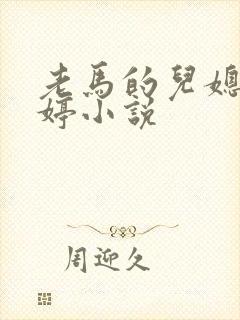 老馬的兒媳
婷小說
周迎久